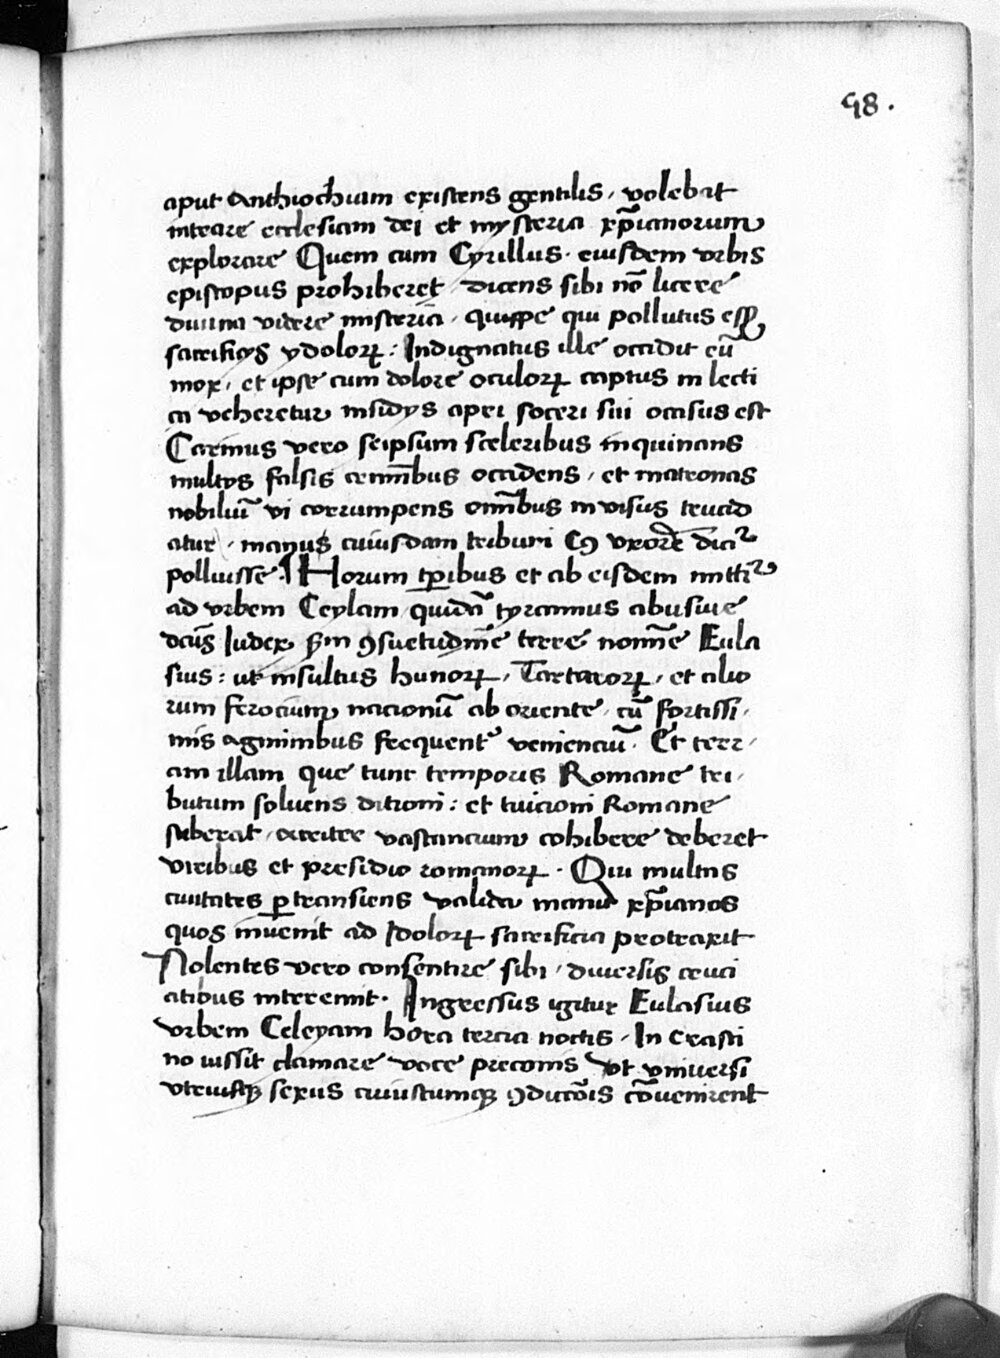 58.
aput Anthiochiam existens gentilis, volebat
intrare ecclesiam dei et mysteria xp̄ianorum
explorare Quem cum Cyrillus. eiusdem vrbis
episcopus prohiberet dicens sibi nō licere
diuina videre misteria, quippe qui pollutus esset
sacrificÿs ydoloꝝ: Indignatus ille occidit eū
mox, et ipse cum dolore oculoꝝ captus in lecti
ca veheretur insidÿs apri soceri sui occisus est
Carinus vero seipsum sceleribus inquinans
multos falsis criminibus occidens, et matronas
nobiliū vi corrumpens omībus invisus trucid
atur, manus cuiusdam tribuni Cꝯ vxorē dicit᷑
polluisse. Horum tp̄ibus et ab eisdem mittit᷑
ad vrbem Ceylam quidā tyrannus abusiue
dcūs Iudex scd̄m ꝯsuetudinē terre nomīe Eula
sius: ut insultus hunoꝝ, Tartaroꝝ, et alio
rum ferocium nacionū ab oriente, cū fortissi,
mis agminibus frequent᷑ venienciū. Et terr,
am illam que tunc temporis Romane tri,
butum soluens ditioni: et tuicioni Romane
suberat, acriter vastancium cohibere deberet
viribus et presidio romanoꝝ. Qui multas
ciuitates ꝑtransiens valida manu xp̄ianos
quos inuenit ad Idoloꝝ sacrificia protraxit
Nolentes vero consentire sibi, diuersis cruci
atibus interemit. Ingressus igitur Eulasius
vrbem Celeyam hora tercia noctis, In crasti
no iussit clamare voce preconis Vt vniuersi
vtriusqꝫ sexus cuiuscumqꝫ ꝯdicōnis cōuenirent